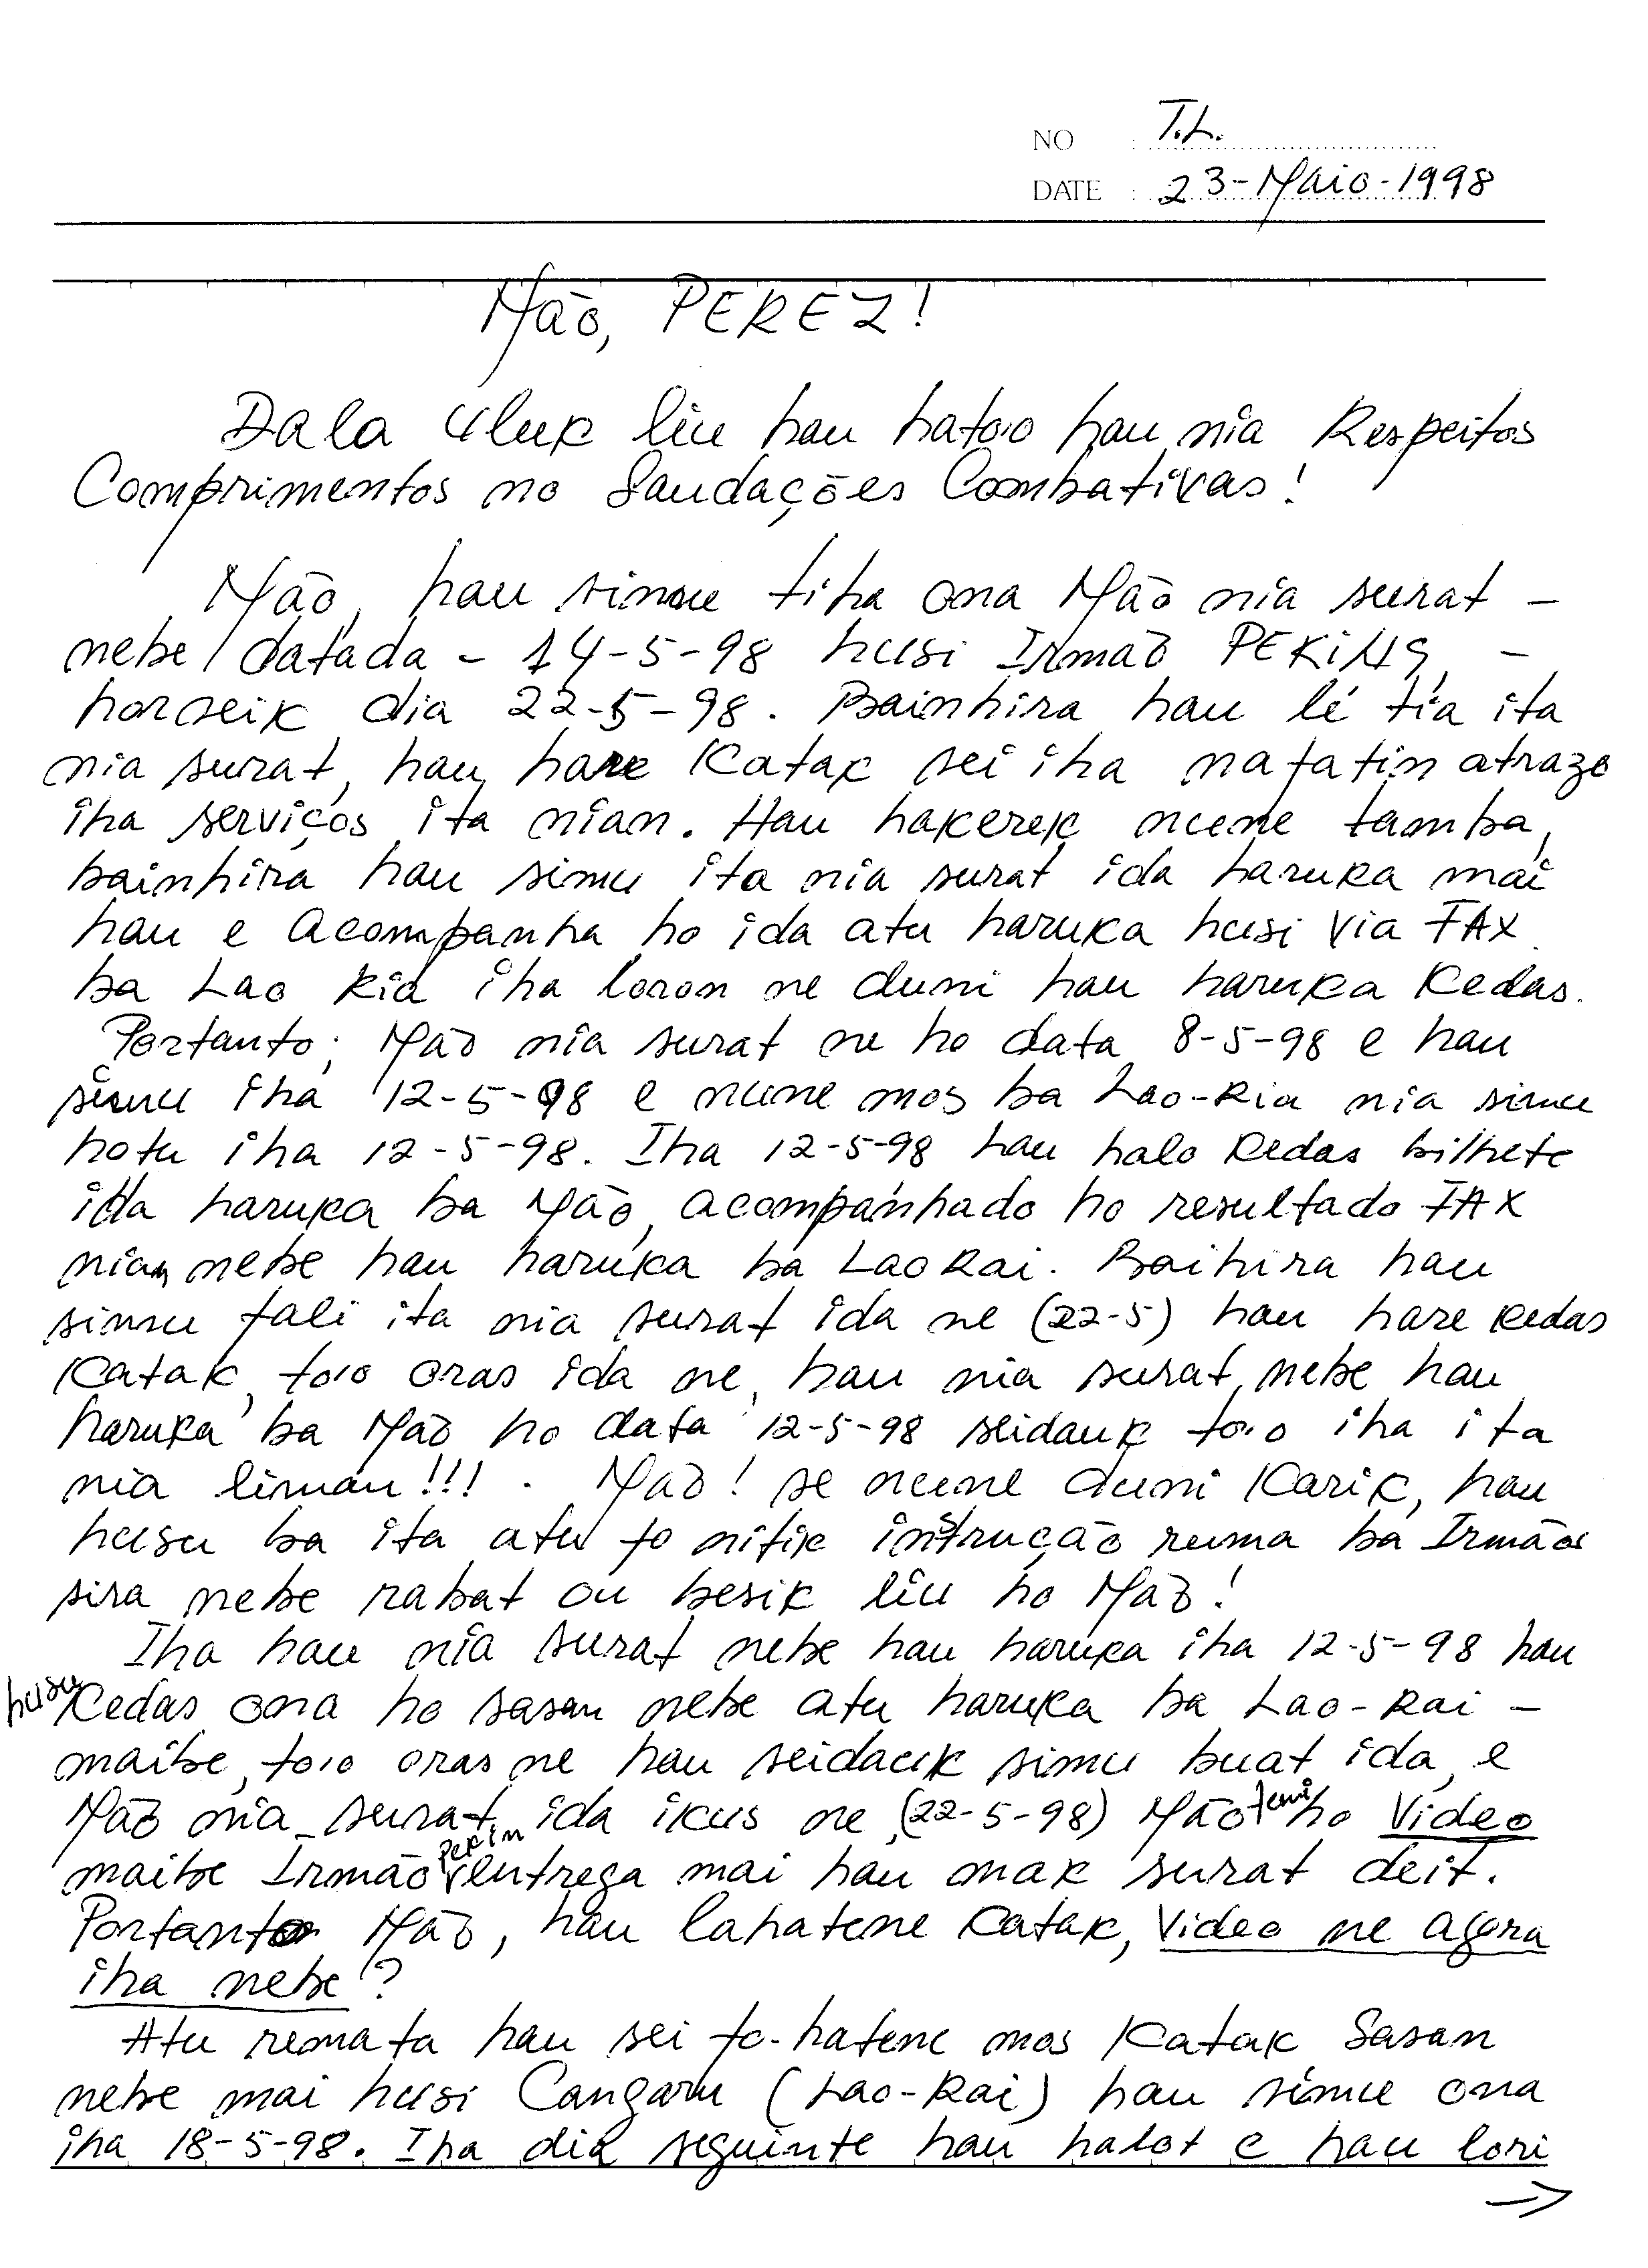 NO : T.L.
DATE : 23-Maio-1998
Mão, PEREZ!
Dala Uluk liu hau hato'o hau nia Respeitos
Comprimentos no Saudações Combativas!
Mão, hau simu tiha ona Mão nia surat -
nebe datada - 14-5-98 husi Irmão PEKING, -
horseik dia 22-5-98. Bainhira hau lé tia ita
nia surat, hau hare Katak sei iha nafatin atrazo
iha serviços ita nian. Hau hakerek nune tamba,
bainhira hau simu ita nia surat ida haruka mai
hau e acompanha ho ida atu haruka husi via FAX
ba Lao Ria iha loron ne duni hau haruka Kedas.
Portanto; Mão nia surat ne ho data 8-5-98 e hau
simu iha 12-5-98 e nune mos ba Lao-Ria nia simu
hotu iha 12-5-98. Iha 12-5-98 hau halo Kedas bilhete
ida haruka ba Mão, acompanhado ho resultado FAX
nian nebe hau haruka ba Lao Rai. Baihira hau
simu fali ita nia surat ida ne (22-5) hau hare Kedas
Katak, to'o oras ida ne, hau nia surat, nebe hau
haruka ba Mão ho data 12-5-98 seidauk to'o iha ita
nia liman!!! . Mão! se nune duni Karik, hau
husu ba ita atu fo nitik instrução ruma ba Irmãos
sira nebe rabat ou besik liu ho Mão!
Iha hau nia surat nebe hau haruka iha 12-5-98 hau
husu Kedas ona ho sasan nebe atu haruka ba Lao-Rai -
maibe, to'o oras ne hau seidauk simu buat ida, e
Mão nia surat ida ikus ne (22-5-98) Mão temi ho Video
maibe Irmão Pekin entrega mai hau mak surat deit.
Portanto Mão, hau lahatene Katak, Video ne agora
iha nebe?
Atu remata hau sei fo-hatene mos Katak Sasan
nebe mai husi Canguru (Lao-Rai) hau simu ona
iha 18-5-98. Iha dia seguinte hau halot e hau lori
→